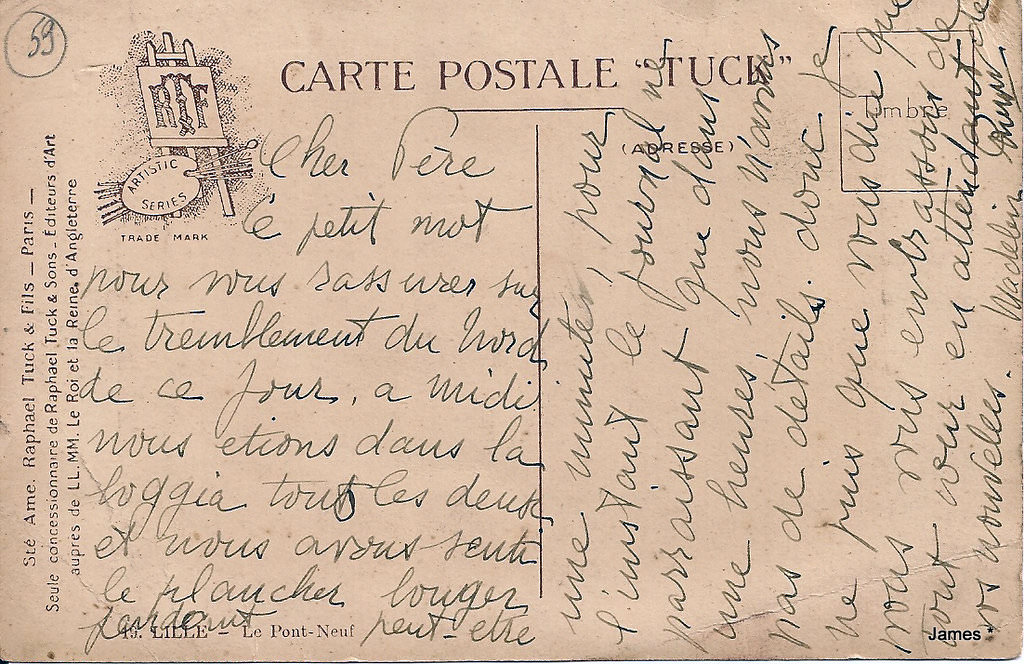 59
CARTE POSTALE "TUCK"
RTF
ARTISTIC
SERIES
TRADE MARK
(ADRESSE)
Timbre
Sté Ame. Raphael Tuck & Fils — Paris —
Seule concessionnaire de Raphael Tuck & Sons - Éditeurs d'Art
auprès de LL.MM. Le Roi et la Reine d'Angleterre
Cher Père
Ce petit mot
pour vous rassurer sur
le tremblement du Nord
de ce jour, a midi
nous etions dans la
loggia tout les deux
et nous avons senti
le plancher bouger
pendant peut-etre
19. LILLE — Le Pont-Neuf
une minute, pour
l'instant le journal ne
parraissant que dans
une heures nous n'avons
pas de details. donc je
ne puis que vous dire que
nous vous embrassons de
tout cœur en attendant de
vos nouvelles. Madeleine
James *